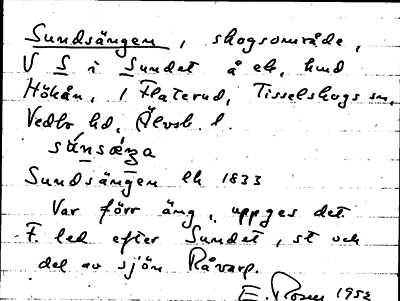 Sundsängen, skogsområde,
V S i Sundet å ek, hmd
Håkån, i Haterud, Tisselskogs sn,
Vedbo hd, Älvsb. l.
sún̠sæ̀ŋa
Sundsängen ek 1833
Var förr äng, uppges det.
F. led efter Sundet, st och
del av sjön Råvarp.
E. Rosen 1952